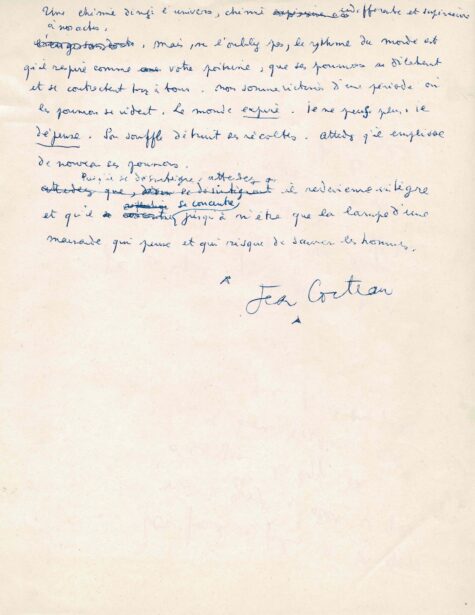 Une chimie dirige l'univers, chimie indifférente et supérieure
à nos actes.
mais, ne l'oubliez pas, le rythme du monde est
qu'il respire comme votre poitrine, que ses poumons se dilatent
et se contractent tour à tour. nous sommes victimes d'une période où
les poumons se vident. Le monde expire. Il ne pense plus. il
dépense. Son souffle détruit ses récoltes. attendez qu'il emplisse
de nouveau ses poumons.
Puisqu'il se désintègre, attendez
il redevienne intègre
et qu'il se concentre jusqu'à n'être que la lampe d'une
mansarde qui pense et qui risque de sauver les hommes.
Jean Cocteau